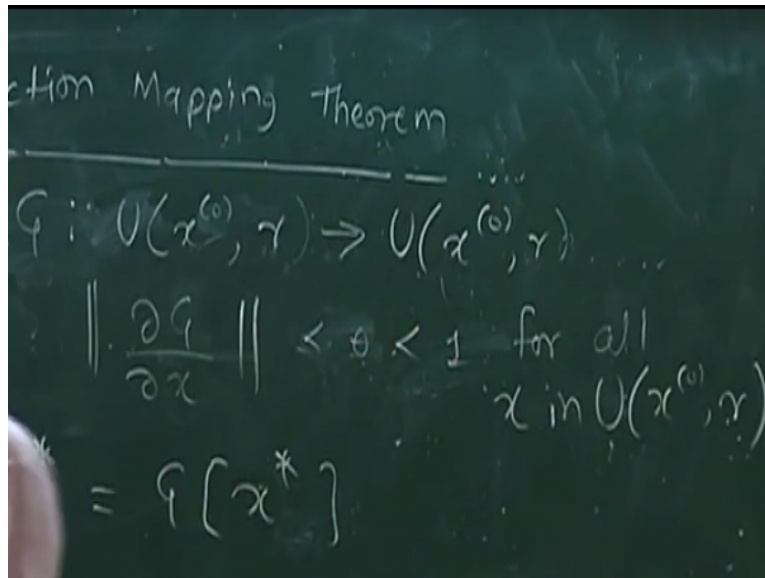 ction Mapping Theorem
G : U(x^(0), r) → U(x^(0), r)
‖ ∂G/∂x ‖ < θ < 1 for all
x in U(x^(0), r)
* = G[x*]